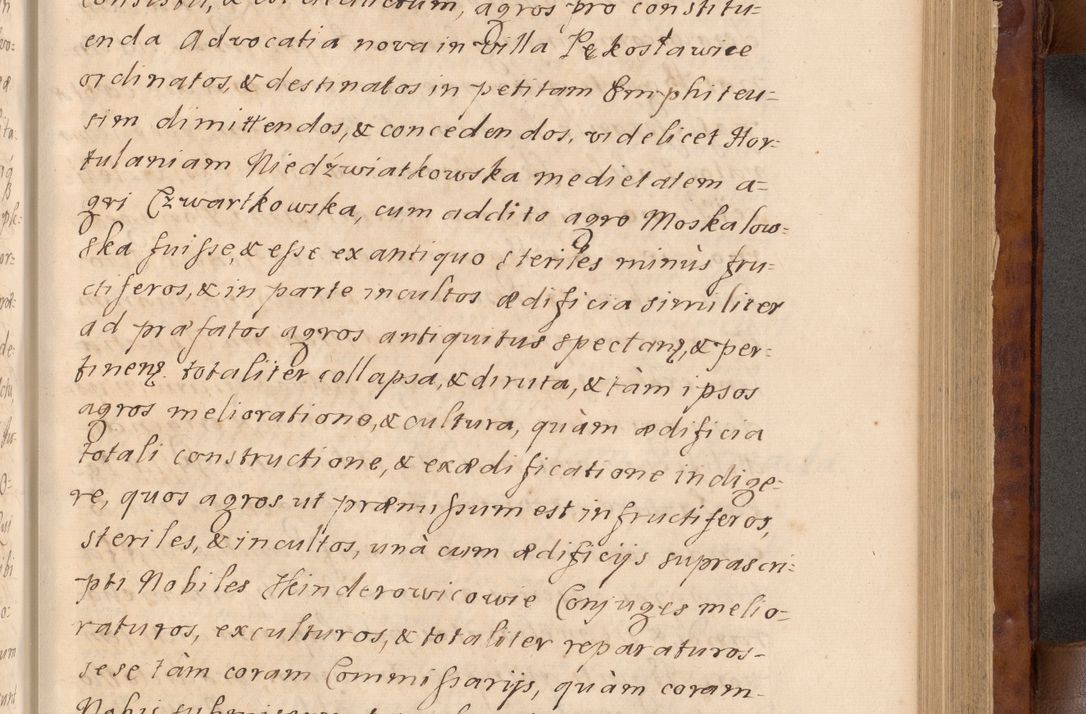 agros pro constitu-
enda Advocatia nova in Villa Pękosławice
ordinatos, & destinatos in petitam Emphiteu-
sim dimittendos, & concedendos, videlicet Hor-
tulaniam Niedźwiatkowska medietatem a-
gri Czwartkowska, cum addito agro Moskalow-
ska fuisse, & esse ex antiquo steriles minùs fru-
ctiferos, & in parte incultos ædificia similiter
ad præfatos agros antiquitus spectanꝫ, & per-
tinenꝫ. totaliter collapsa, & diruta, & tàm ipsos
agros melioratione, & cultura, quàm ædificia
totali constructione, & exædificatione indige-
re, quos agros ut præmissum est infructiferos,
steriles, & incultos, unà cum ædificijs suprascri-
pti Nobiles Heinderowicowie Conjuges melio-
raturos, exculturos, & totaliter reparaturos-
sese tàm coram Commissarijs, quàm coram-
Nobis